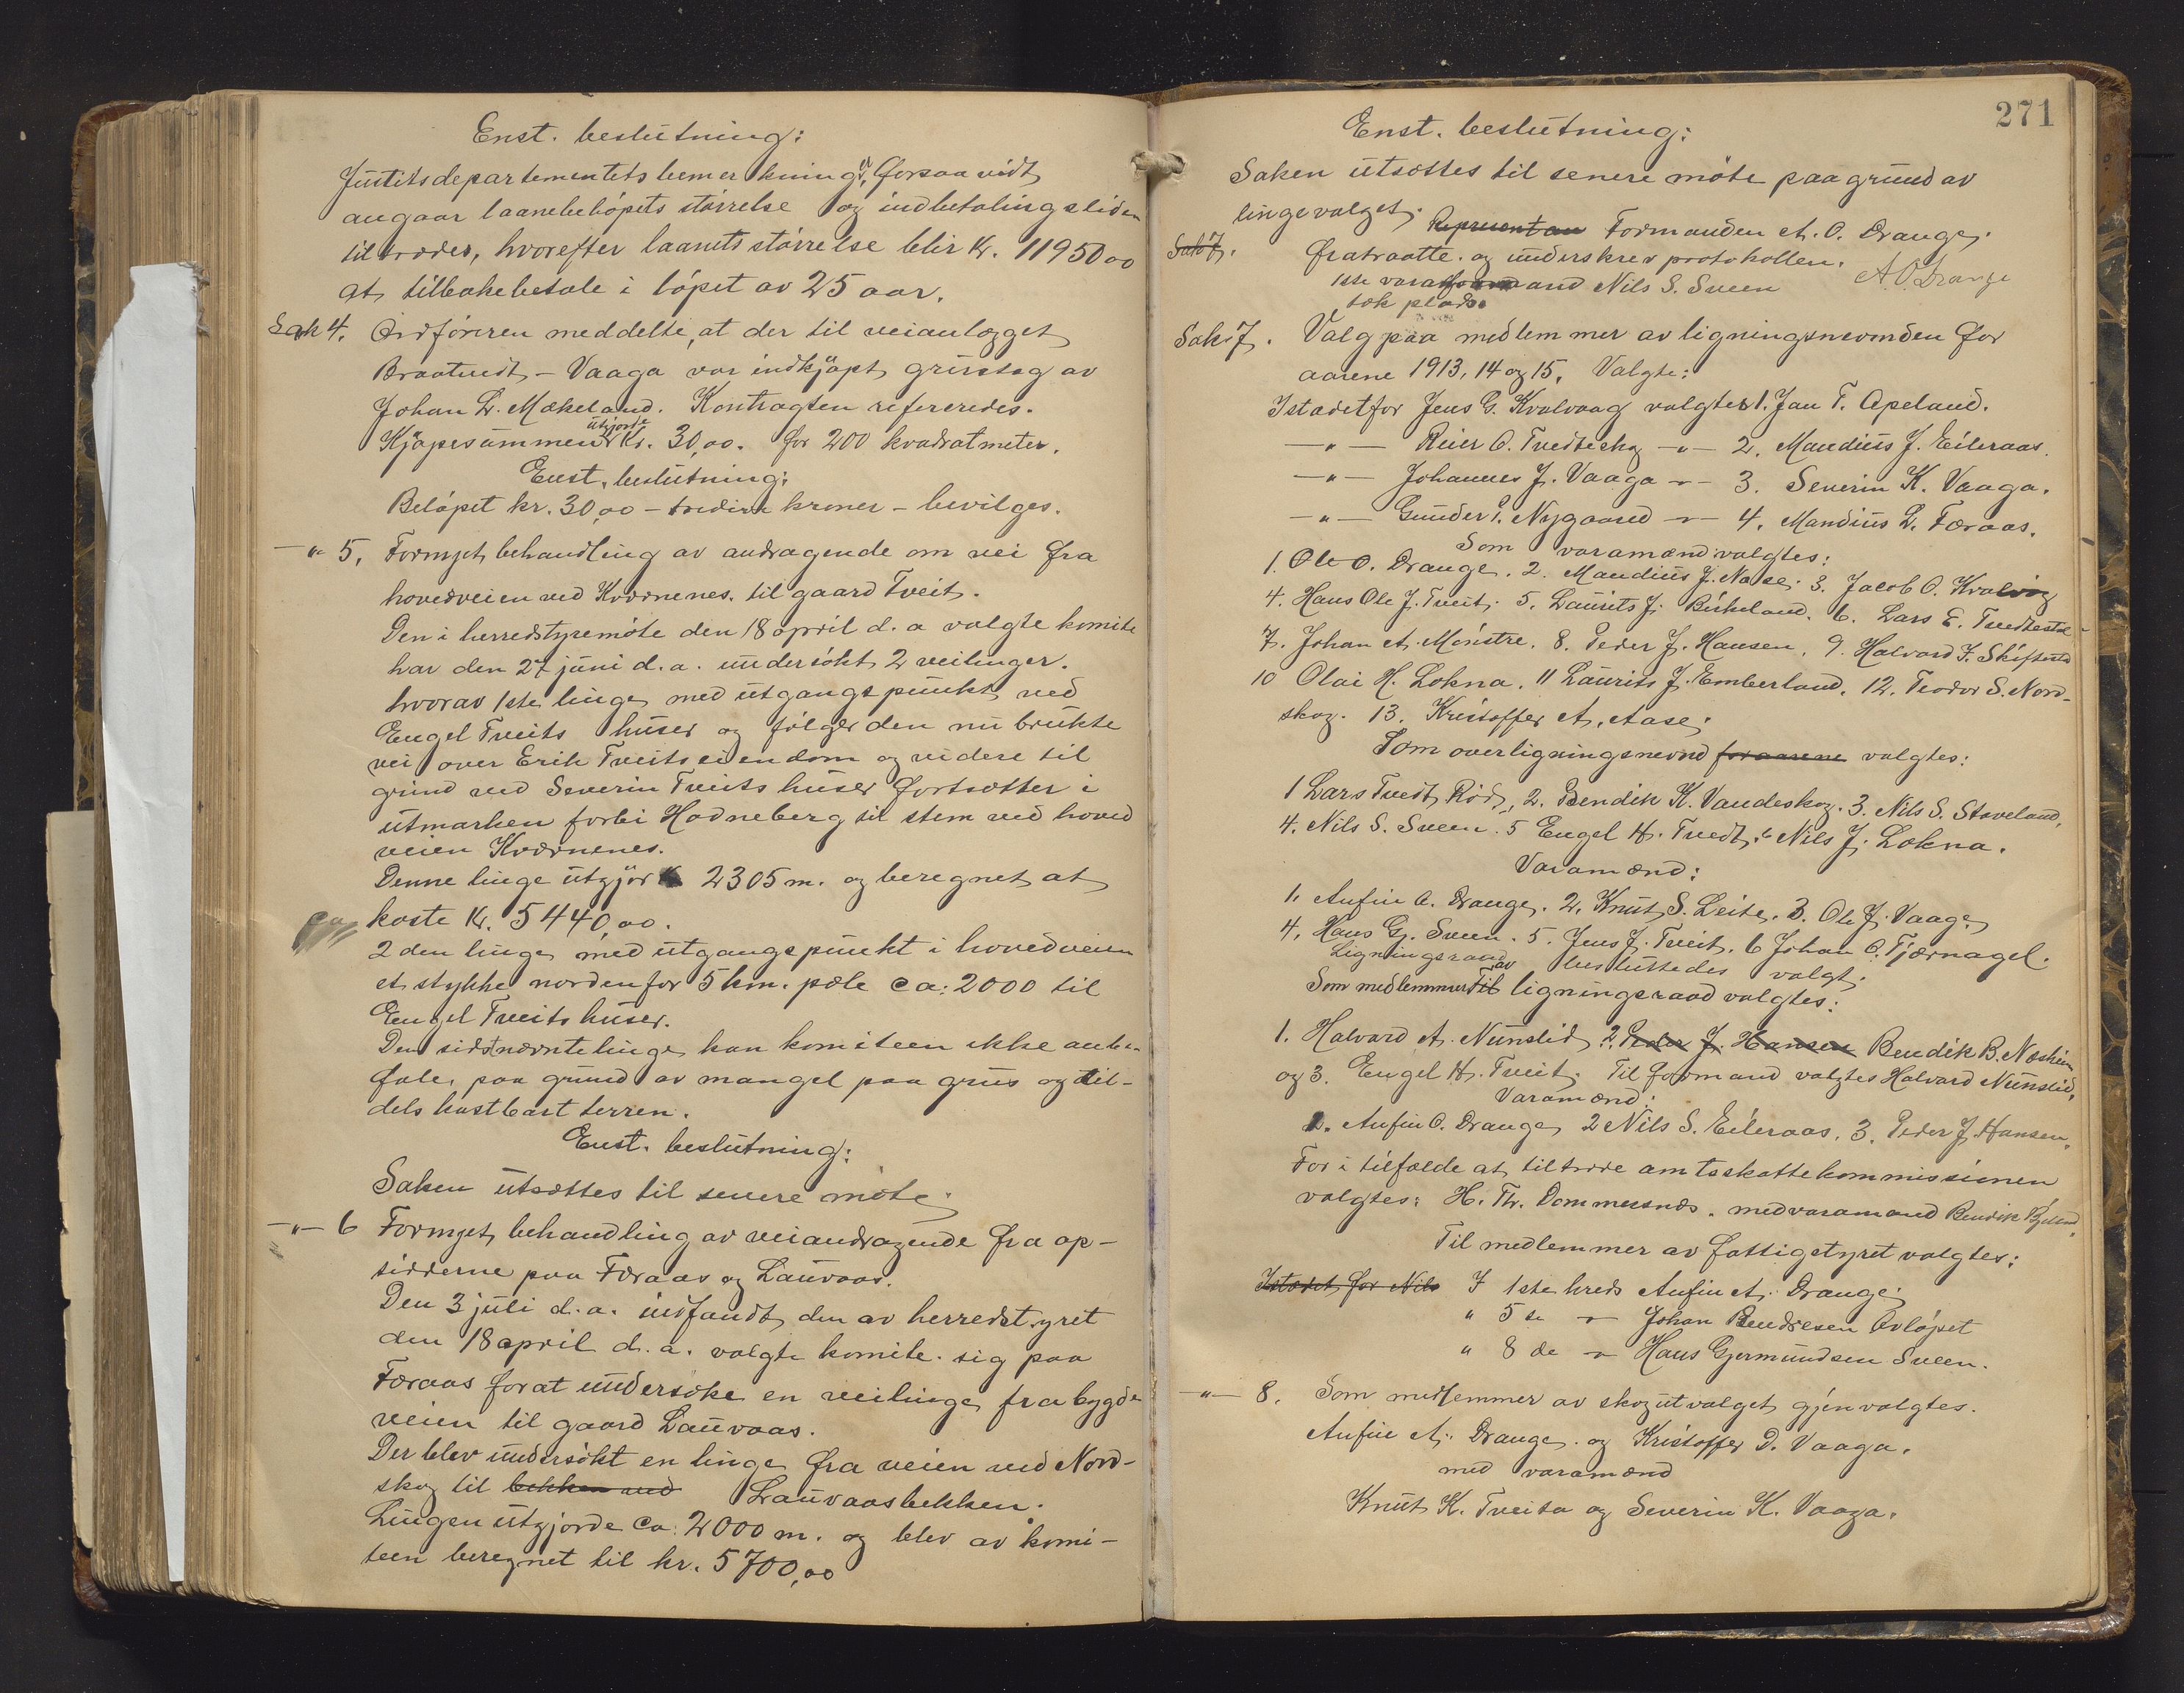 Enst. beslutning:
Justitsdepartementets bemerkning, forsaavidt
angaar laanebeløpets størrelse og indbetalingstiden
tiltrædes, hvorefter laanets størrelse blir kr. 11950,00
at tilbakebetale i løpet av 25 aar.
Sak 4. Ordføreren meddelte, at der til veianlægget
Braatveit – Vaaga var indkjøpt grustag av
Johan L. Mækeland. Kontragten refereredes.
Kjøpesummen utgjorde kr. 30,00. for 200 kvadratmeter.
Enst. beslutning:
Beløpet kr. 30,00 – tredive kroner – bevilges.
–"– 5. Fornyet behandling av andragende om vei fra
hovedveien ved Kværnenes til gaard Tveit.
Den i herredstyremøte den 18 april d. a valgte komite
har den 27 juni d. a. undersøkt 2 veilinger.
hvorav 1ste linge med utgangspunkt ved
Engel Tveits huser og følger den nu brukte
vei over Erik Tveits eiendom og videre til
grind ved Severin Tveits huser fortsætter i
utmarken forbi Hodneberg til stem ved hoved
veien Kværnenes.
Denne linge utgjør 2305 m. og beregnet at
koste kr. 5440,00.
2den linge med utgangspunkt i hovedveien
et stykke nordenfor 5 km. pæle ca: 2000 til
Engel Tveits huser.
Den sidstnævnte linge kan komiteen ikke anbe-
fale, paa grund av mangel paa grus og til-
dels kostbart terren.
Enst. beslutning:
Saken utsættes til senere møte.
–"– 6 Fornyet behandling av veiandragende fra op-
sidderne paa Færaas og Lauvaas.
Den 3 juli d. a. indfandt den av herredstyret
den 18 april d. a. valgte komite sig paa
Færaas forat undersøke en veilinge fra bygde
veien til gaard Lauvaas.
Der blev undersøkt en linge fra veien ved Nord-
skog til bekken ved Lauvaasbekken.
Lingen utgjorde ca: 2000 m. og blev av komi-
teen beregnet til kr. 5700,00
271
Enst. beslutning:
Saken utsættes til senere møte paa grund av
lingevalget.
Sak 7. Representan Formanden A. O. Drange
fratraatte og underskrev protokollen. A O Drange
1ste varaformand Nils S. Sveen
tok plads.
Sak 7. Valg paa medlemmer av ligningsnevnden for
aarene 1913, 14 og 15. Valgte:
Istedetfor Jens G. Kvalvaag valgtes 1. Jan T. Apeland.
–"– Reier O. Tvedteskog –"– 2. Mandius J. Eileraas.
–"– Johannes J. Vaaga –"– 3. Severin K. Vaaga.
–"– Gunder T. Nygaard –"– 4. Mandius L. Færaas.
Som varamænd valgtes:
1. Ole O. Drange. 2. Mandius J. Næse. 3. Jacob O. Kvalvog
4. Hans Ole J. Tveit. 5. Laurits J. Birkeland. 6. Lars E. Tvedtestø
7. Johan A. Mønstre. 8. Peder J. Hansen. 9. Halvard J. Skiftestd
10 Olai H. Lokna. 11 Laurits J. Emberland. 12. Teodor S. Nord-
skog. 13. Kristoffer A. Aase.
Som overligningsnevnd for aarene valgtes:
1 Lars Tveit, Rød, 2. Bendik K. Vandeskog. 3. Nils S. Staveland,
4. Nils S. Sveen. 5 Engel H. Tvedt. 6 Nils J. Lokna.
Varamænd:
1. Anfin O. Drange. 2. Knut S. Leite. 3. Ole J. Vaage
4. Hans G. Sveen. 5. Jens J. Tveit. 6 Johan O. Tjærnagel.
Ligningsraad av besluttedes valgt.
Som medlemmer til ligningsraad valgtes:
1. Halvard A. Nunslid 2. Peder J. Hansen Bendik B. Næshim
og 3. Engel H. Tveit. Til formand valgtes Halvard Nunslid,
Varamænd:
1. Anfin O. Drange, 2 Nils S. Eileraas, 3. Peder J. Hansen.
For i tilfælde at tiltræde amtsskattekommissionen
valgtes: H. Th. Dommersnæs. med varamand Bendik
Til medlemmer av fattigstyret valgtes:
Istedet for Nils I 1ste kreds Anfin A. Drange
" 5te –"– Johan Bendiksen Ovløpet
" 8de –"– Hans Gjermundsen Sveen.
–"– 8. Som medlemmer av skogutvalget gjenvalgtes.
Anfin A. Drange og Kristoffer D. Vaaga.
med varamænd
Knut K. Tveita og Severin K. Vaaga.